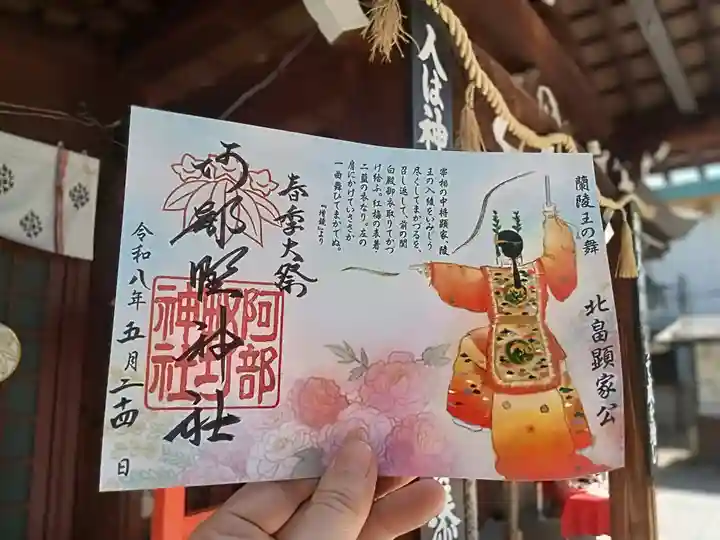 人は神
蘭陵王の舞
北畠顕家公
宰相の中将顕家、陵
王の入綾をいみじう
尽くしてまかづるを、
召し返して、前の関
白殿御衣取りてかづ
け給ふ。紅梅の表着・
二藍の衣なり。左の
肩にかけていささか
一曲舞ひてまかでぬ。
『増鏡』より
春季大祭
阿部野神社
阿部
野
神社
令和八年五月二十四日